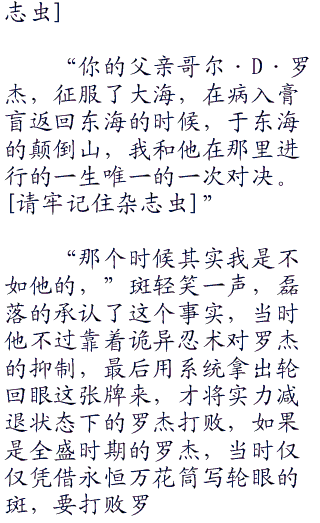 志虫]
“你的父亲哥尔·D·罗
杰，征服了大海，在病入膏
盲返回东海的时候，于东海
的颠倒山，我和他在那里进
行的一生唯一的一次对决。
[请牢记住杂志虫]”
“那个时候其实我是不
如他的，”斑轻笑一声，磊
落的承认了这个事实，当时
他不过靠着诡异忍术对罗杰
的抑制，最后用系统拿出轮
回眼这张牌来，才将实力减
退状态下的罗杰打败，如果
是全盛时期的罗杰，当时仅
仅凭借永恒万花筒写轮眼的
斑，要打败罗